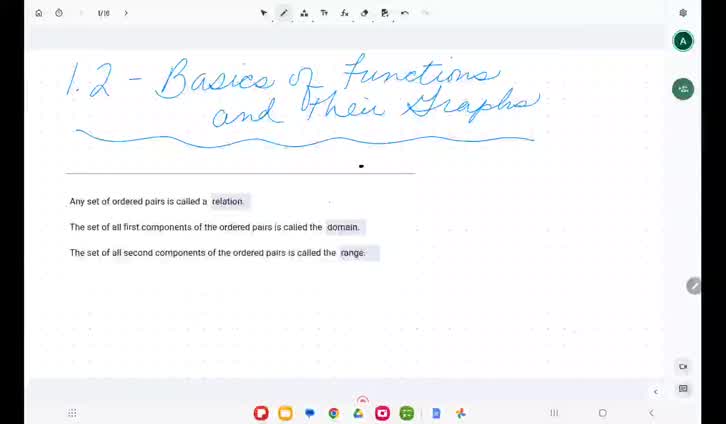 1/16
1.2 - Basics of Functions
and their Graphs
Any set of ordered pairs is called a relation.
The set of all first components of the ordered pairs is called the domain.
The set of all second components of the ordered pairs is called the range.
A